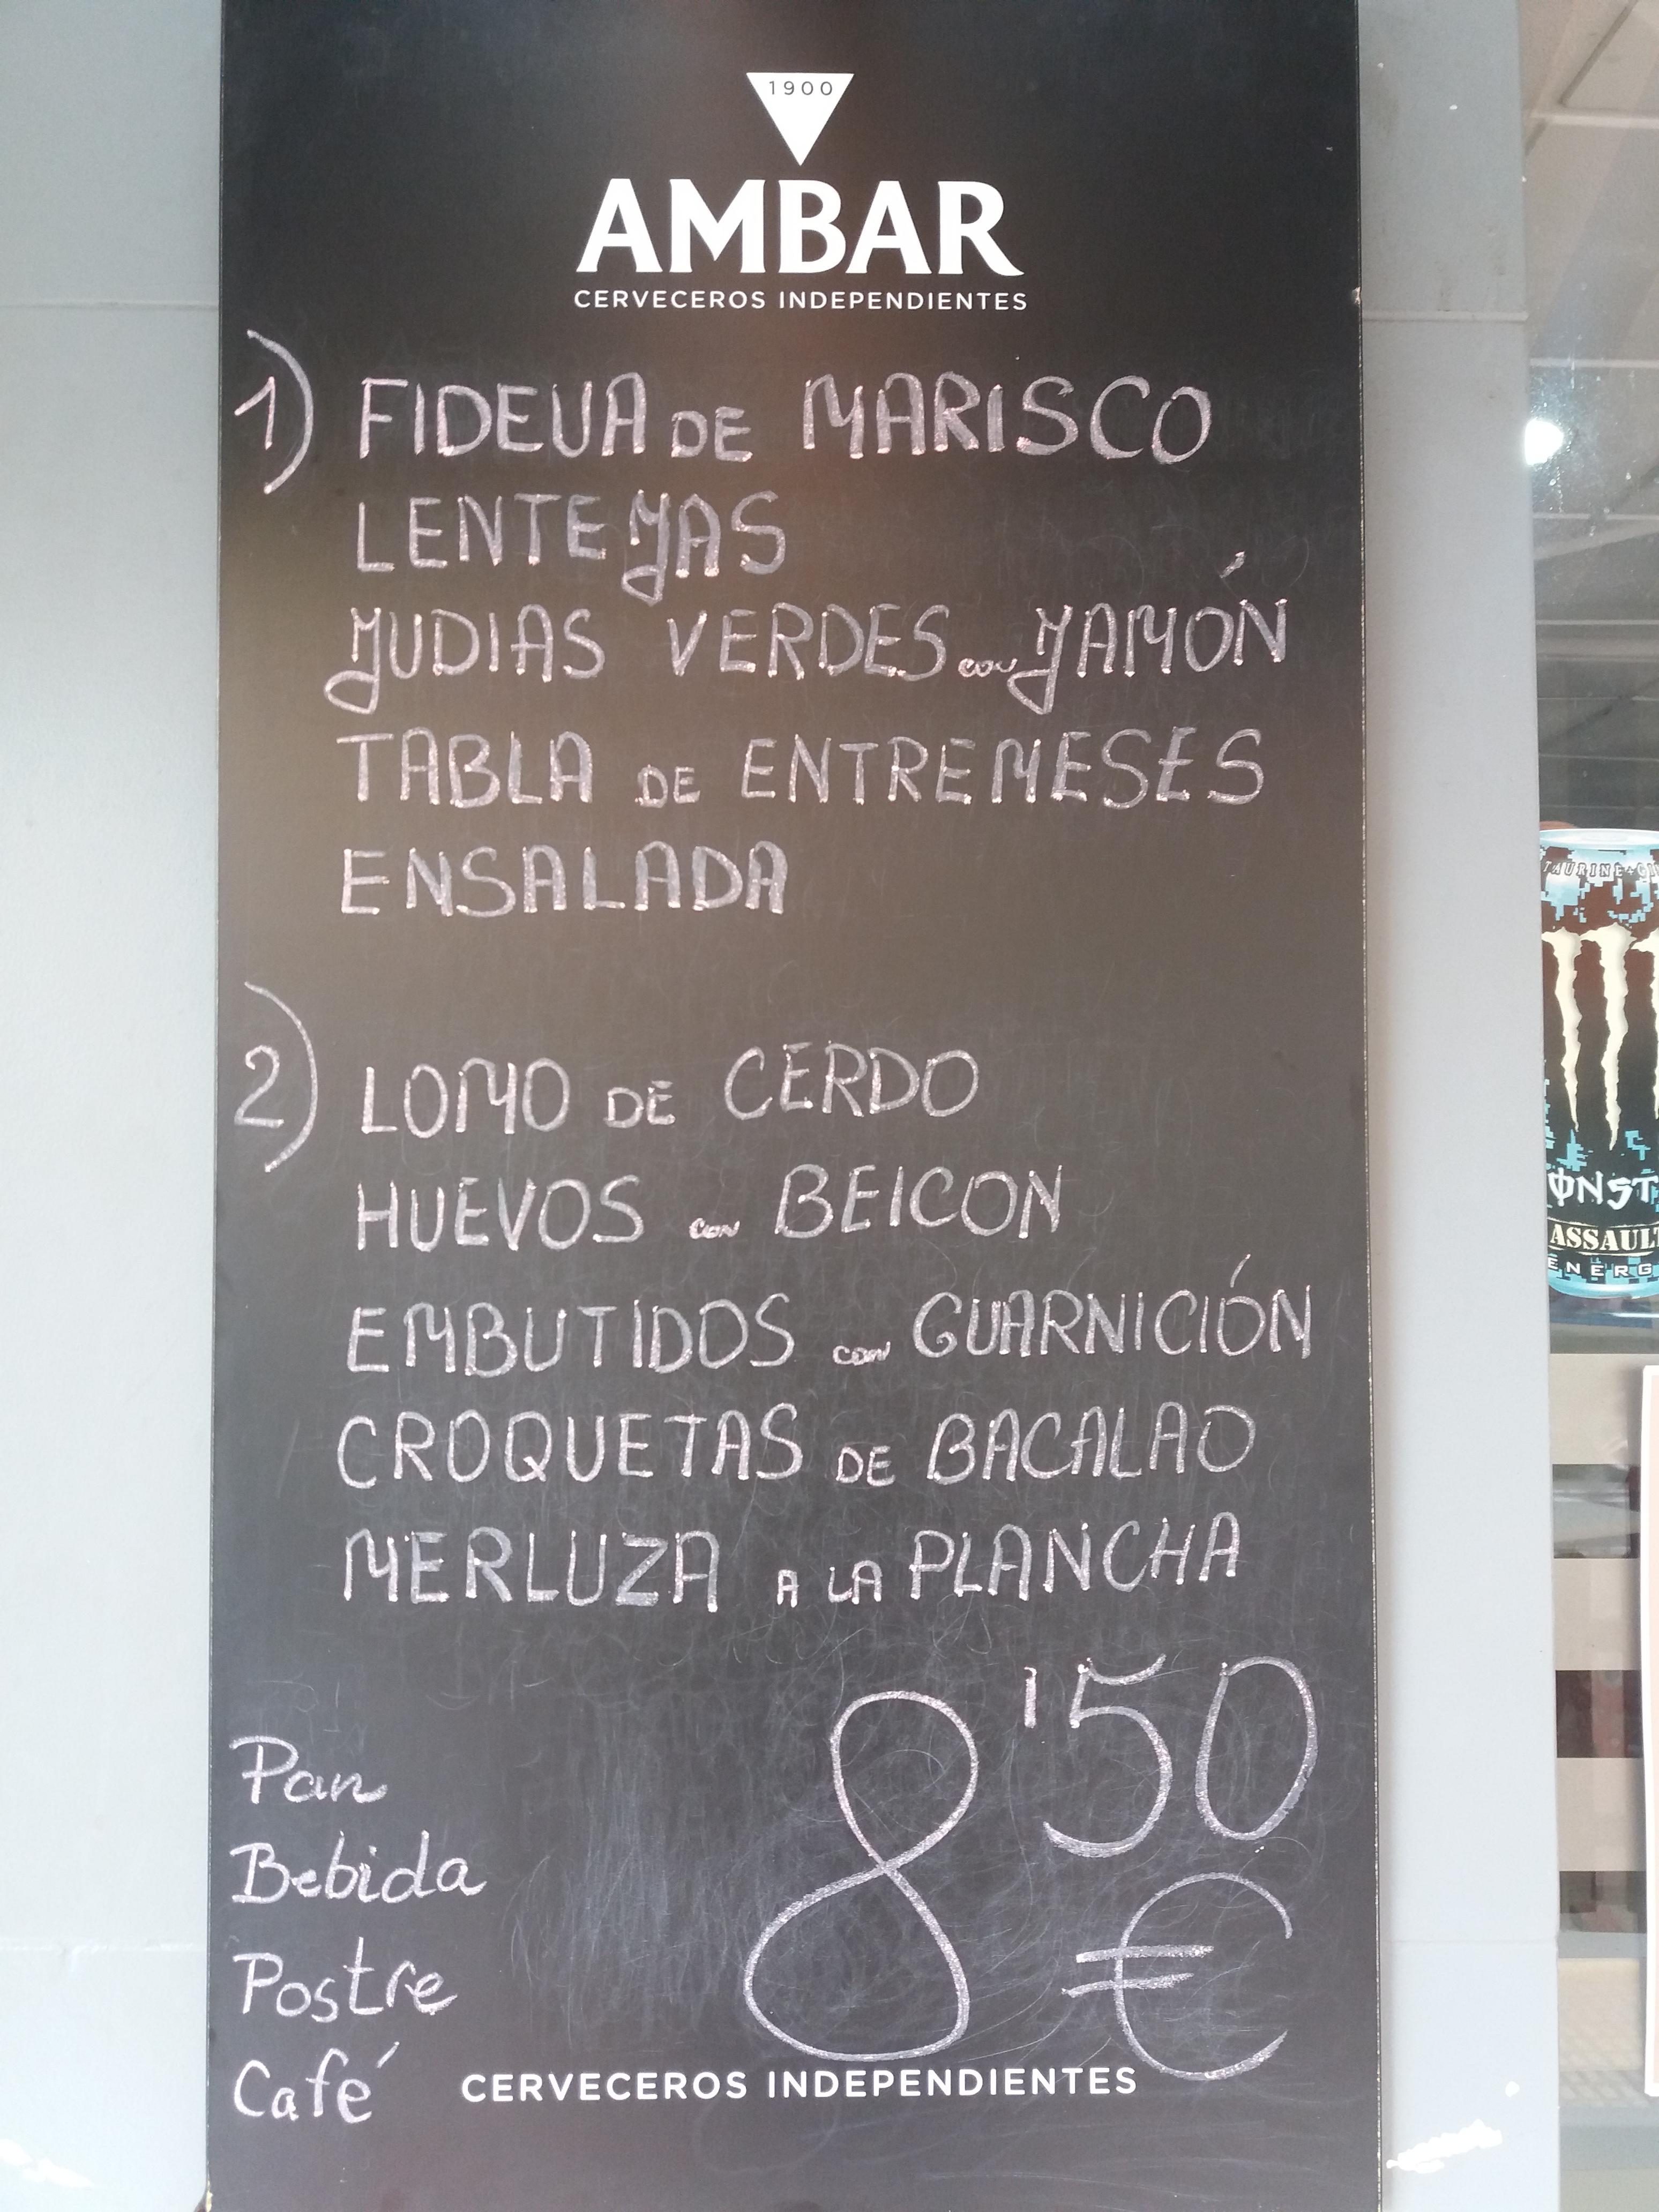 1900
AMBAR
CERVECEROS INDEPENDIENTES
1) FIDEUA DE MARISCO
LENTEJAS
JUDIAS VERDES con JAMÓN
TABLA DE ENTREMESES
ENSALADA
2) LOMO DE CERDO
HUEVOS con BEICON
EMBUTIDOS con GUARNICIÓN
CROQUETAS DE BACALAO
MERLUZA A LA PLANCHA
8'50 €
Pan
Bebida
Postre
Café
CERVECEROS INDEPENDIENTES
TAURINE
ASSAULT